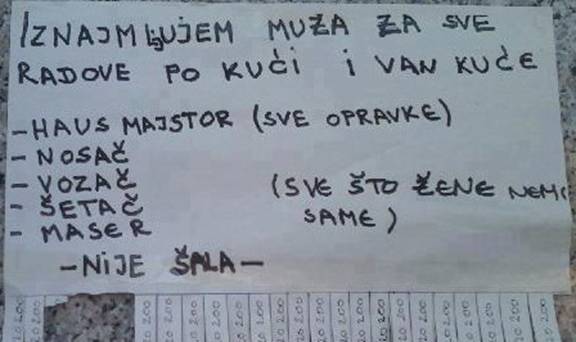 IZNAJMLJUJEM MUŽA ZA SVE
RADOVE PO KUĆI I VAN KUĆE
-HAUS MAJSTOR (SVE OPRAVKE)
- NOSAČ
- VOZAČ
- ŠETAČ
- MASER
(SVE ŠTO ŽENE
SAME)
-NIJE ŠALA-